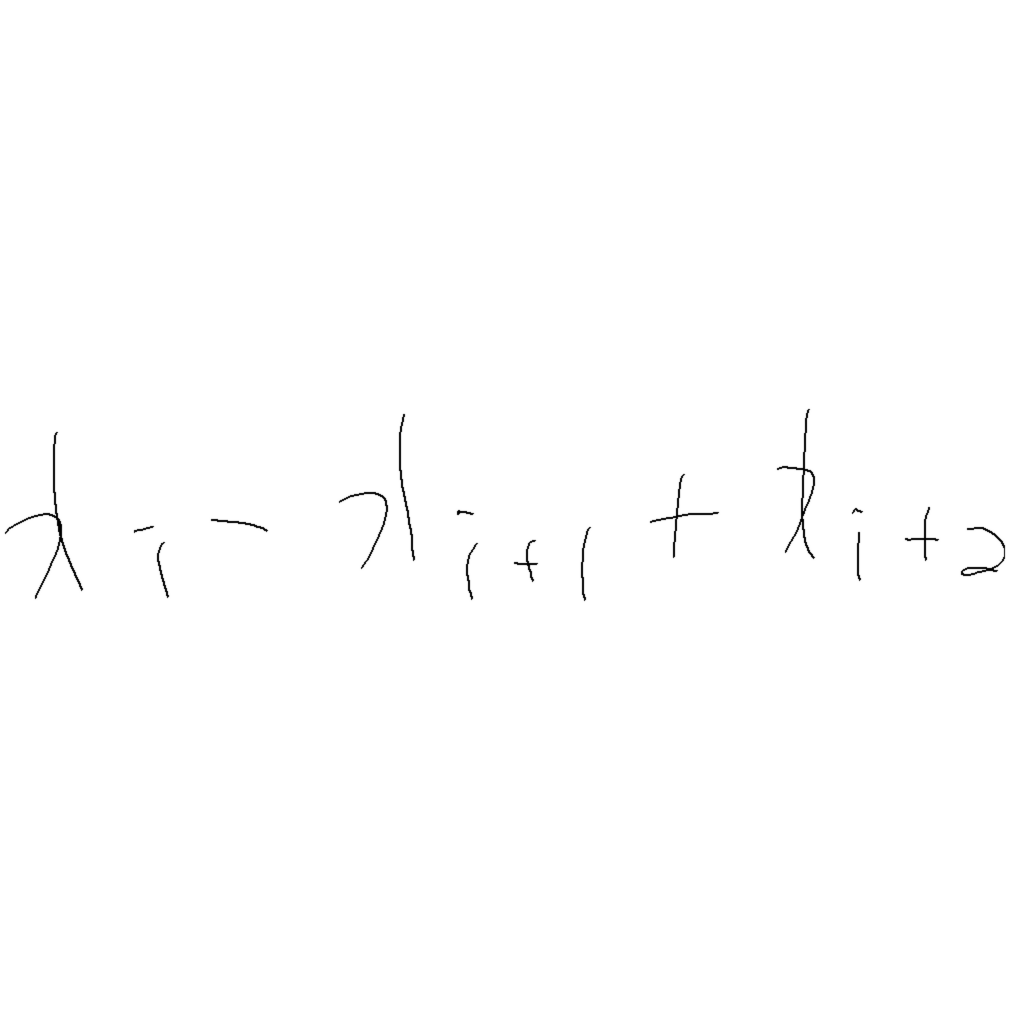 λ_i − λ_{i+1} + λ_{i+2}